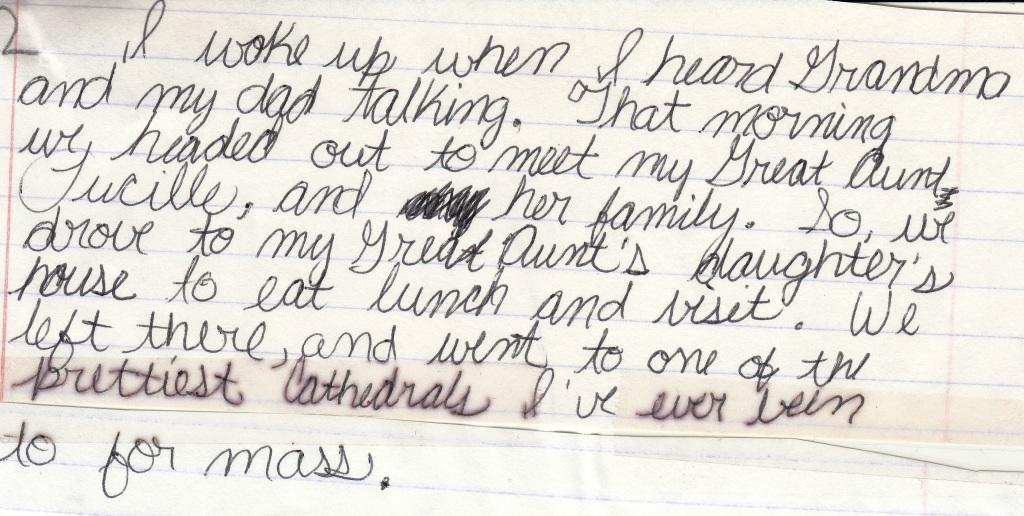 2 I woke up when I heard Grandma
and my dad talking. That morning
we headed out to meet my Great Aunt
Lucille, and her family. So, we
drove to my Great Aunt's daughter's
house to eat lunch and visit. We
left there, and went to one of the
prettiest Cathedrals I've ever been
to for mass.